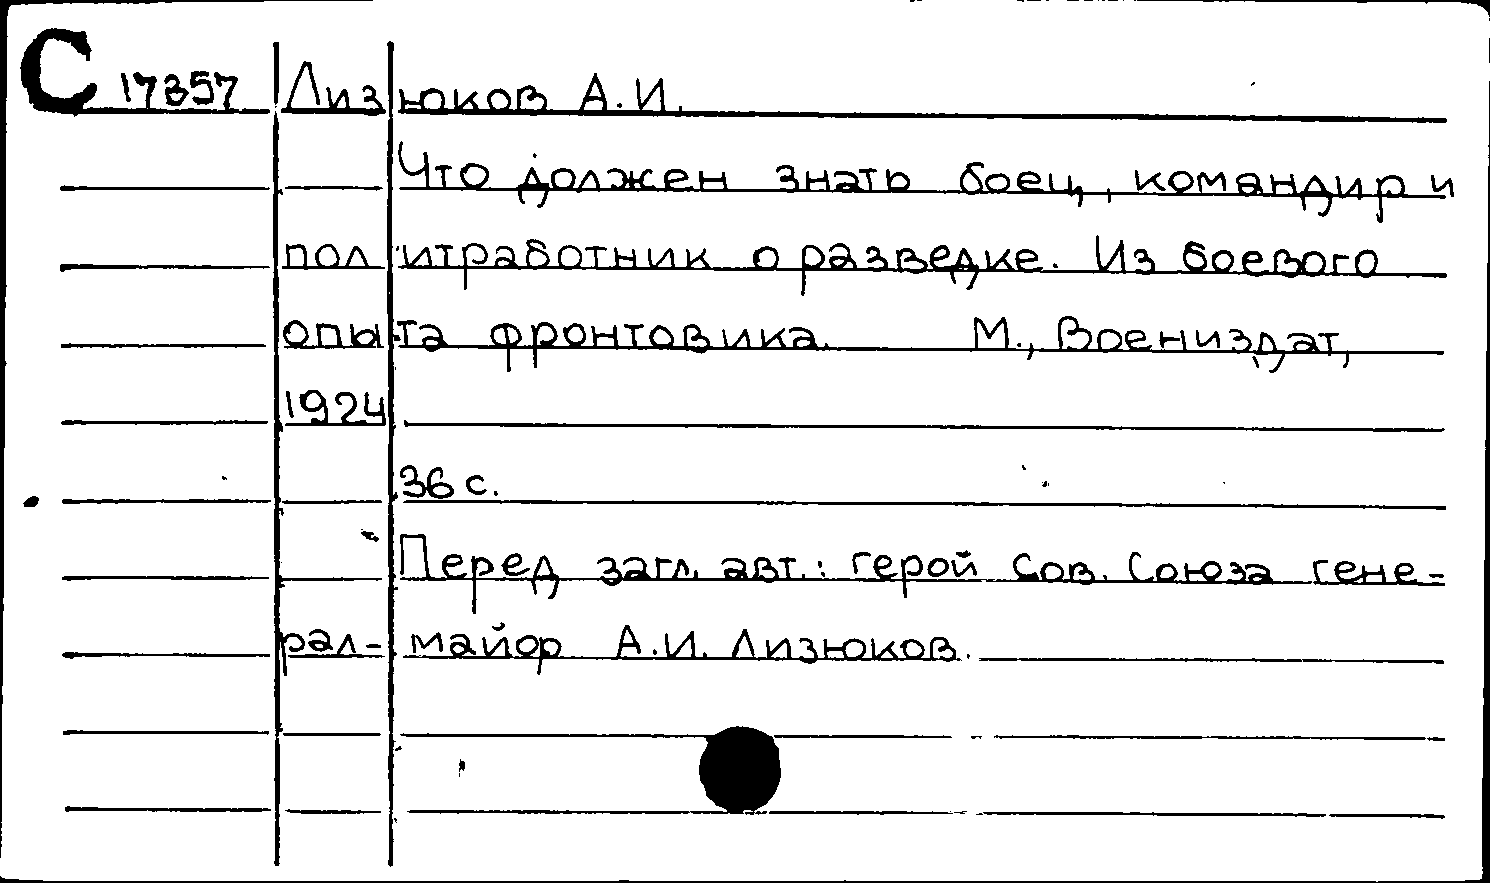 С 17357 Лизюков А.И.
Что должен знать боец, командир и
политработник о разведке. Из боевого
опыта фронтовика. М., Воениздат,
1924
36 с.
Перед загл. авт.: герой Сов. Союза гене-
рал-майор А.И. Лизюков.